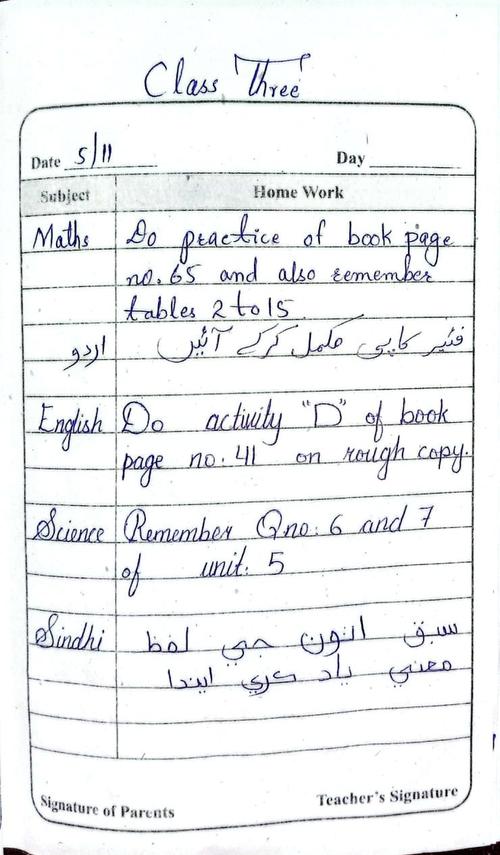 Class Three
Date 5/11 Day
Subject Home Work
Maths Do practice of book page
no. 65 and also remember
tables 2 to 15
اردو فئیر کاپی مکمل کرکے آئیں
English Do activity "D" of book
page no. 41 on rough copy.
Science Remember Q no: 6 and 7
of unit: 5
Sindhi سبق اٺون جي لفظ
معنيٰ ياد ڪري ايندا
Signature of Parents Teacher's Signature